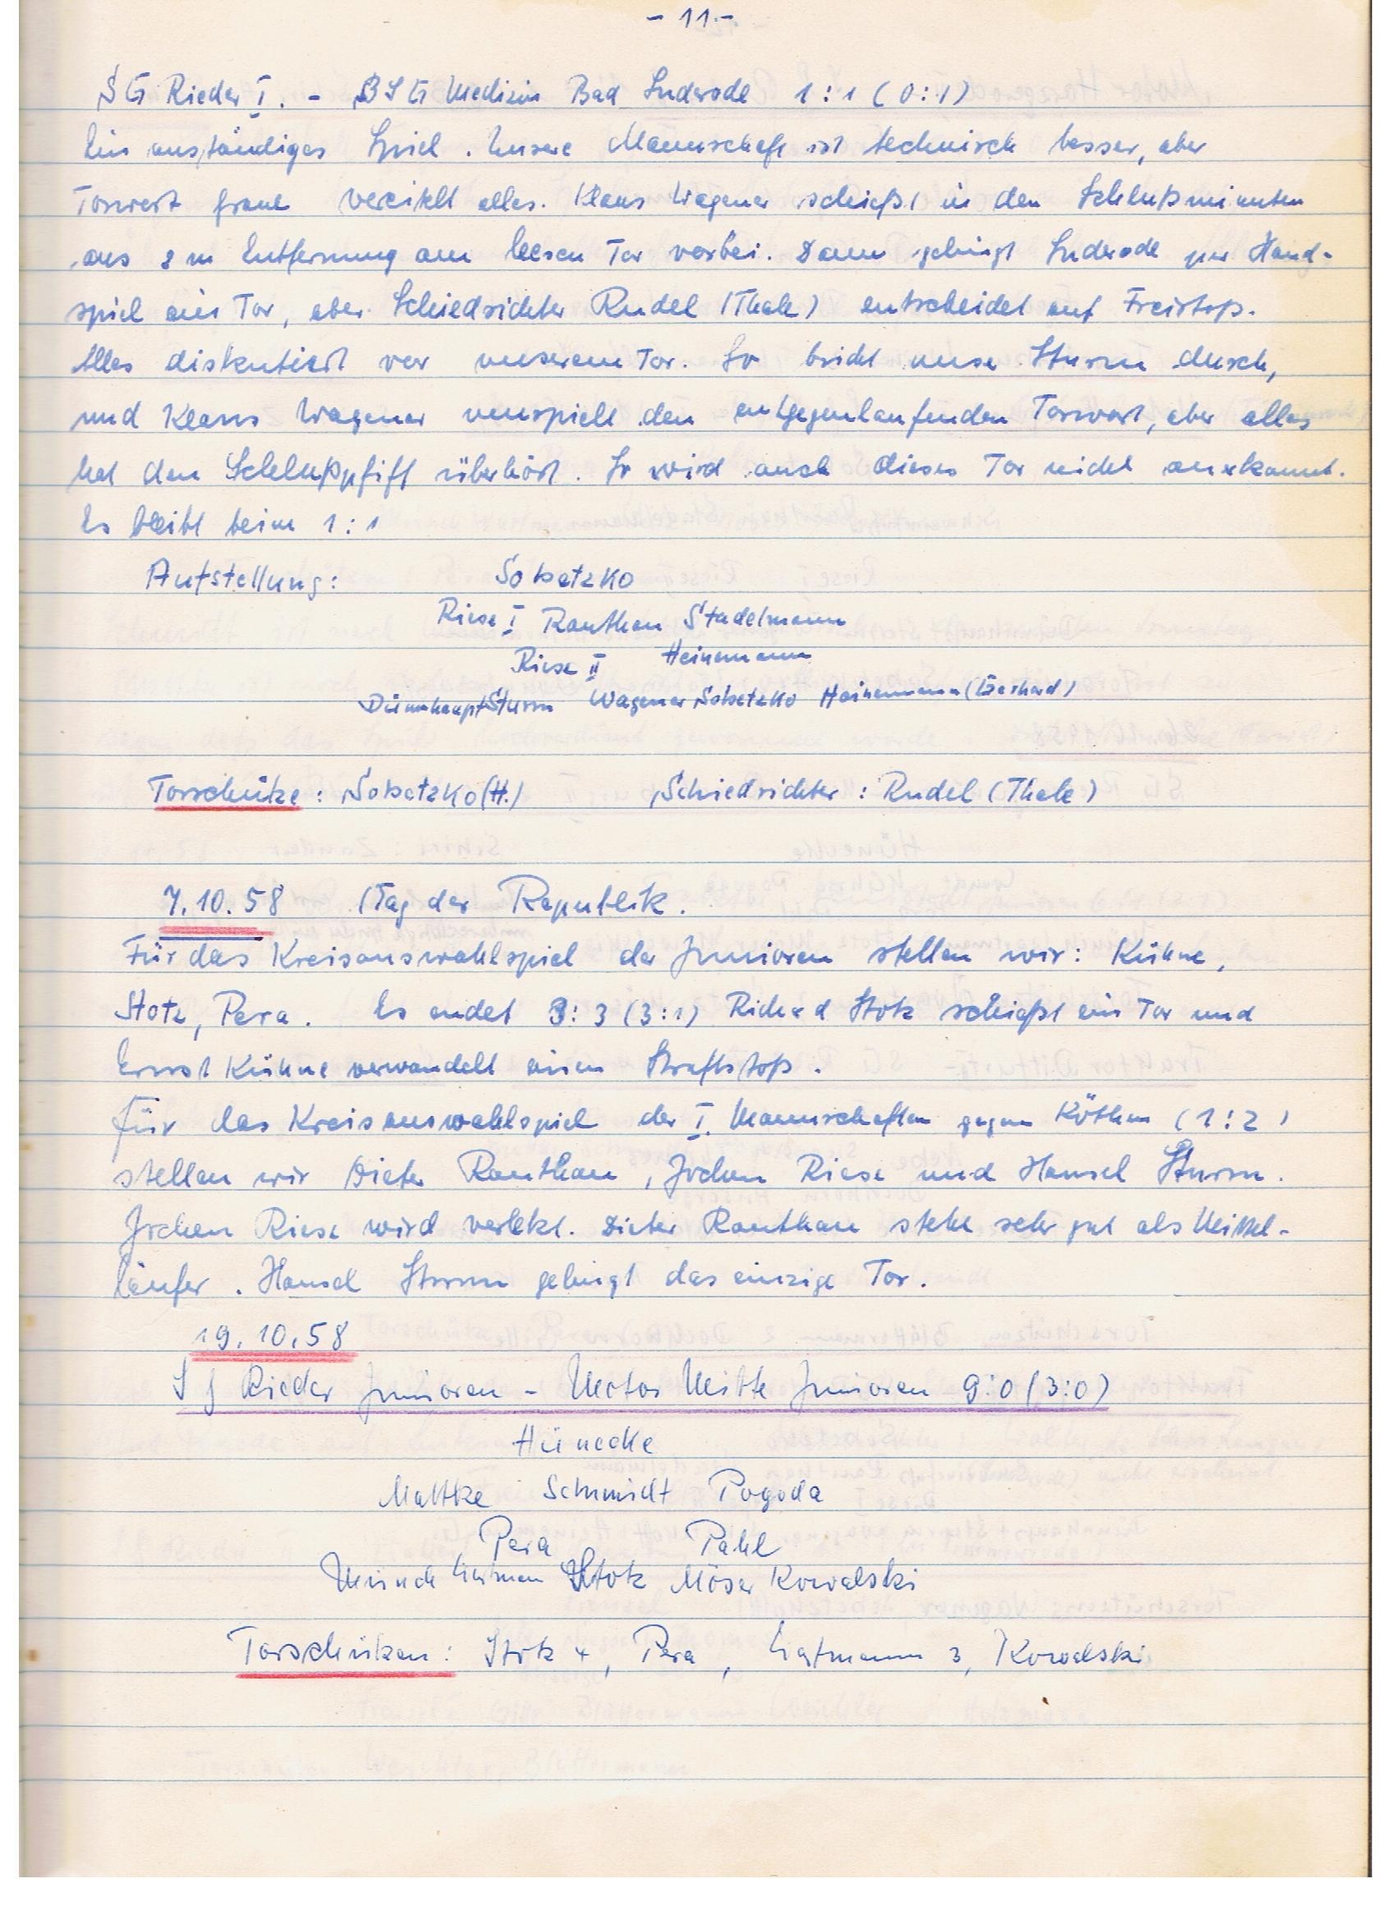 - 11. -
SG Rieder I. - BSG Medizin Bad Suderode 1:1 (0:1)
Ein anständiges Spiel. Unsere Mannschaft ist technisch besser, aber
Torwart vereitelt alles. Klaus Wagener schießt in den Schlußminuten
aus 2 m Entfernung am leeren Tor vorbei. Dann gelingt Suderode per Hand-
spiel ein Tor, aber Schiedsrichter Rudel (Thale) entscheidet auf Freistoß.
Alles diskutiert vor unserem Tor. So bricht unser Sturm durch,
und Klaus Wagener umspielt den entgegenlaufenden Torwart, aber alles
hat den Schlußpfiff überhört. So wird auch dieses Tor nicht anerkannt.
Es bleibt beim 1:1
Aufstellung: Sobetzko
Riese I Rauthan Stadelmann
Riese II Heinemann
Dünnhaupt Sturm Wagener Sobetzko Heinemann (Gerhard)
Torschütze: Sobetzko (H.) Schiedsrichter: Rudel (Thale)
7.10.58 (Tag der Republik.
Für das Kreisauswahlspiel der Junioren stellen wir: Kühne,
Stotz, Pera. Es endet 3:3 (3:1) Richard Stotz schießt ein Tor und
Ernst Kühne verwandelt einen Strafstoß.
Für das Kreisauswahlspiel der I. Mannschaften gegen Köthen (1:2)
stellen wir Dieter Rauthan, Jochen Riese und Hansel Sturm.
Jochen Riese wird verletzt. Dieter Rauthan steht sehr gut als Mittel-
läufer. Hansel Sturm gelingt das einzige Tor.
19.10.58
SG Rieder Junioren - Motor Mitte Junioren 9:0 (3:0)
Hünecke
Mattke Schmidt Pogoda
Pera Pahl
Münch Stotz Möser Kowalski
Torschützen: Stotz 4, Pera, 3, Kowalski